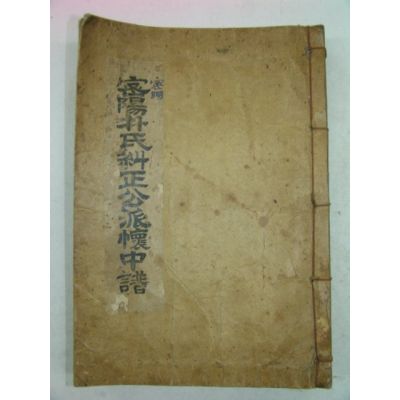 密陽朴氏糾正公派懷中譜